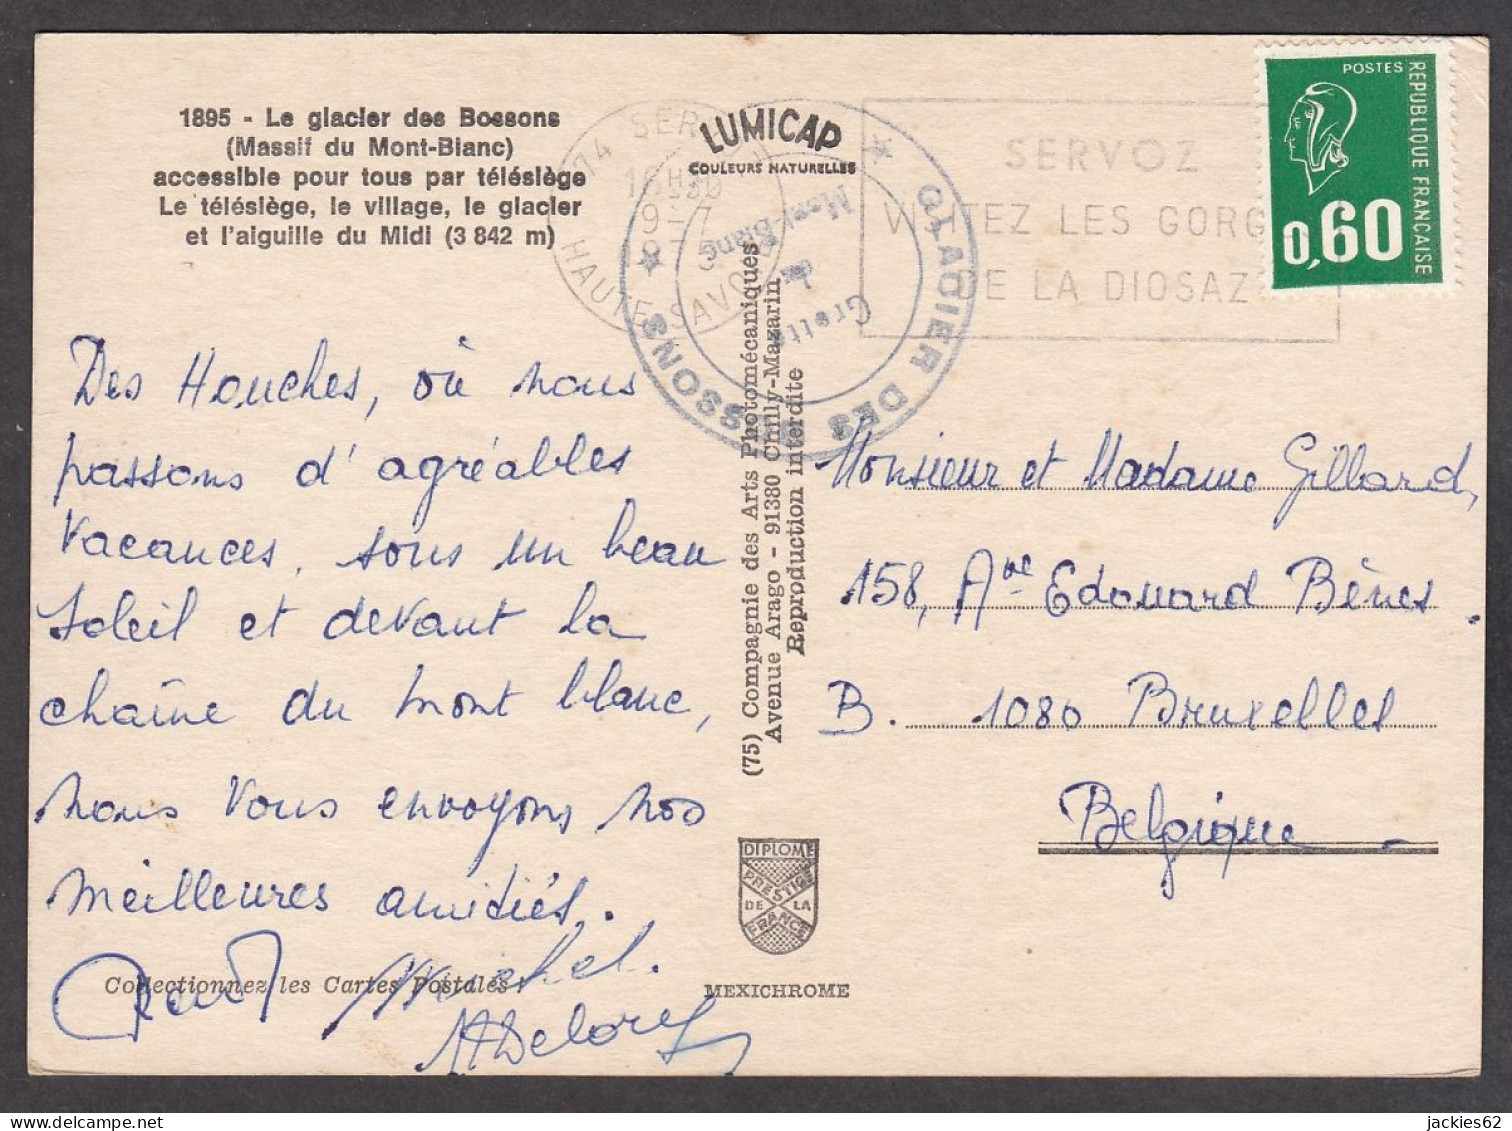 1895 - Le glacier des Bossons
(Massif du Mont-Blanc)
accessible pour tous par télésiège
Le télésiège, le village, le glacier
et l'aiguille du Midi (3 842 m)
LUMICAP
COULEURS NATURELLES
74 SER
16H30
9-7
HAUTE-SAVOIE
GLACIER DES BOSSONS
Grotte
Mont-Blanc
SERVOZ
VISITEZ LES GORG
DE LA DIOSAZ
POSTES
REPUBLIQUE FRANÇAISE
0,60
Des Houches, où nous
passons d'agréables
vacances, sous un beau
soleil et devant la
chaîne du mont blanc,
nous vous envoyons nos
meilleures amitiés.
Michel.
Collectionnez les Cartes Postales !
(75) Compagnie des Arts Photomécaniques
Avenue Arago - 91380 Chilly-Mazarin
Reproduction interdite
DIPLOME
PRESTIGE
DE LA
FRANCE
MEXICHROME
Monsieur et Madame Gillard,
158, Ave Edouard Bènes.
B. 1080 Bruxelles
Belgique
jackies62